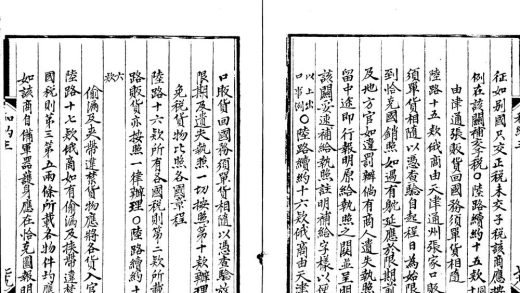 征如别國只交正税未交子税該關應按
例在該關補交子税○陸路續約十五款
由津通張販貨回國務須單貨相隨
陸路十五款俄商由天津通州張家口販
須單貨相隨以憑查驗自起程日為始限
到恰克圖銷照如遇有躭延應於限期前
及地方官如違罰辦倘有商人遺失執照
留中途即行報明原給執照之關並呈明
該關妥速補給執照註明補給字樣以便
以上出口事例○陸路續約十六款俄商由天津
口販貨回國務須單貨相隨以憑查驗放
限期及遺失執照一切按照第十款辦理
免税貨物比照各國章程
陸路十六款所有各國税則第二款所載
路販貨亦按照一律辦理○陸路續約十
六款
偷漏及夾帶違禁貨物應將各貨入官
陸路十七款俄商如有偷漏及挾帶違禁
國税則第三第五兩條所載各物件均應
如該商自備軍器護身應在恰克圖報明